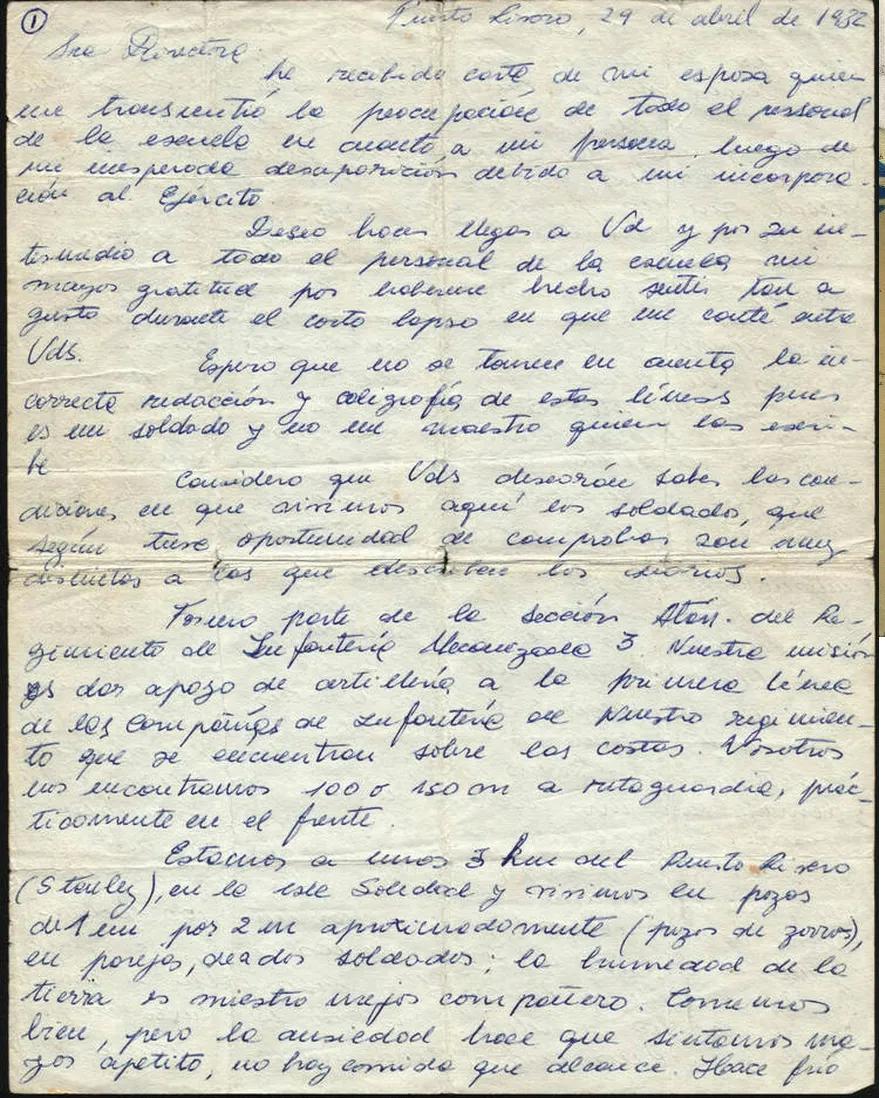 1
Puerto Rivero, 29 de abril de 1982
Sra Directora
he recibido carta de mi esposa quien
me transmitió la preocupación de todo el personal
de la escuela en cuanto a mi persona luego de
mi inesperada desaparición debido a mi incorpora-
ción al Ejército.
Deseo hacer llegar a Vd y por su in-
termedio a todo el personal de la escuela mi
mayor gratitud por haberme hecho sentir tan a
gusto durante el corto lapso en que me conté entre
Vds.
Espero que no se tomen en cuenta la in-
correcta redacción y caligrafía de estas líneas pues
es un soldado y no un maestro quien las escri-
be
Considero que Vds desearán saber las con-
diciones en que vivimos aquí los soldados, que
según tuve oportunidad de comprobar son muy
distintas a las que describen los diarios.
Formo parte de la sección del Re-
gimiento de Infantería Mecanizada 3. Nuestra misión
es dar apoyo de artillería a la primera línea
de las Compañías de Infantería de Nuestro regimien-
to que se encuentran sobre las costas. Nosotros
nos encontramos 100 o 150 m a retaguardia, prác-
ticamente en el frente.
Estamos a unos 3 km del Puerto Rivero
(Stanley), en la isla Soledad y vivimos en pozos
de 1 m por 2 m aproximadamente (pozos de zorros),
en parejas, de a dos soldados; la humedad de la
tierra es nuestro mejor compañero. Comemos
bien, pero la ansiedad hace que sintamos ma-
yor apetito, no hay comida que alcance. Hace frío